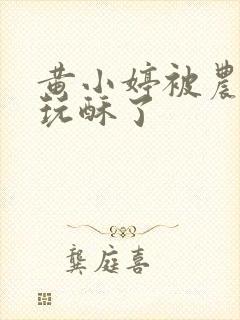 黄小婷被農
玩酥了
龔庭喜